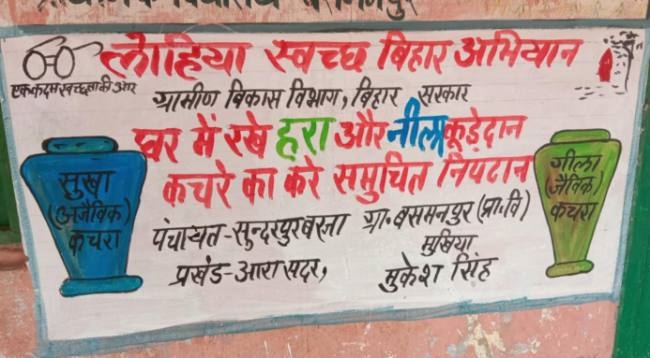 लोहिया स्वच्छ बिहार अभियान
एक कदम स्वच्छता की ओर
ग्रामीण विकास विभाग, बिहार सरकार
घर में रखे हरा और नीला कूड़ेदान
कचरे का करे समुचित निपटान
सुखा
(अजैविक)
कचरा
गीला
(जैविक)
कचरा
पंचायत-सुन्दरपुर बरना ग्रा॰ बसमनपुर (प्रा॰ वि)
प्रखंड-आरा सदर,
मुखिया
मुकेश सिंह